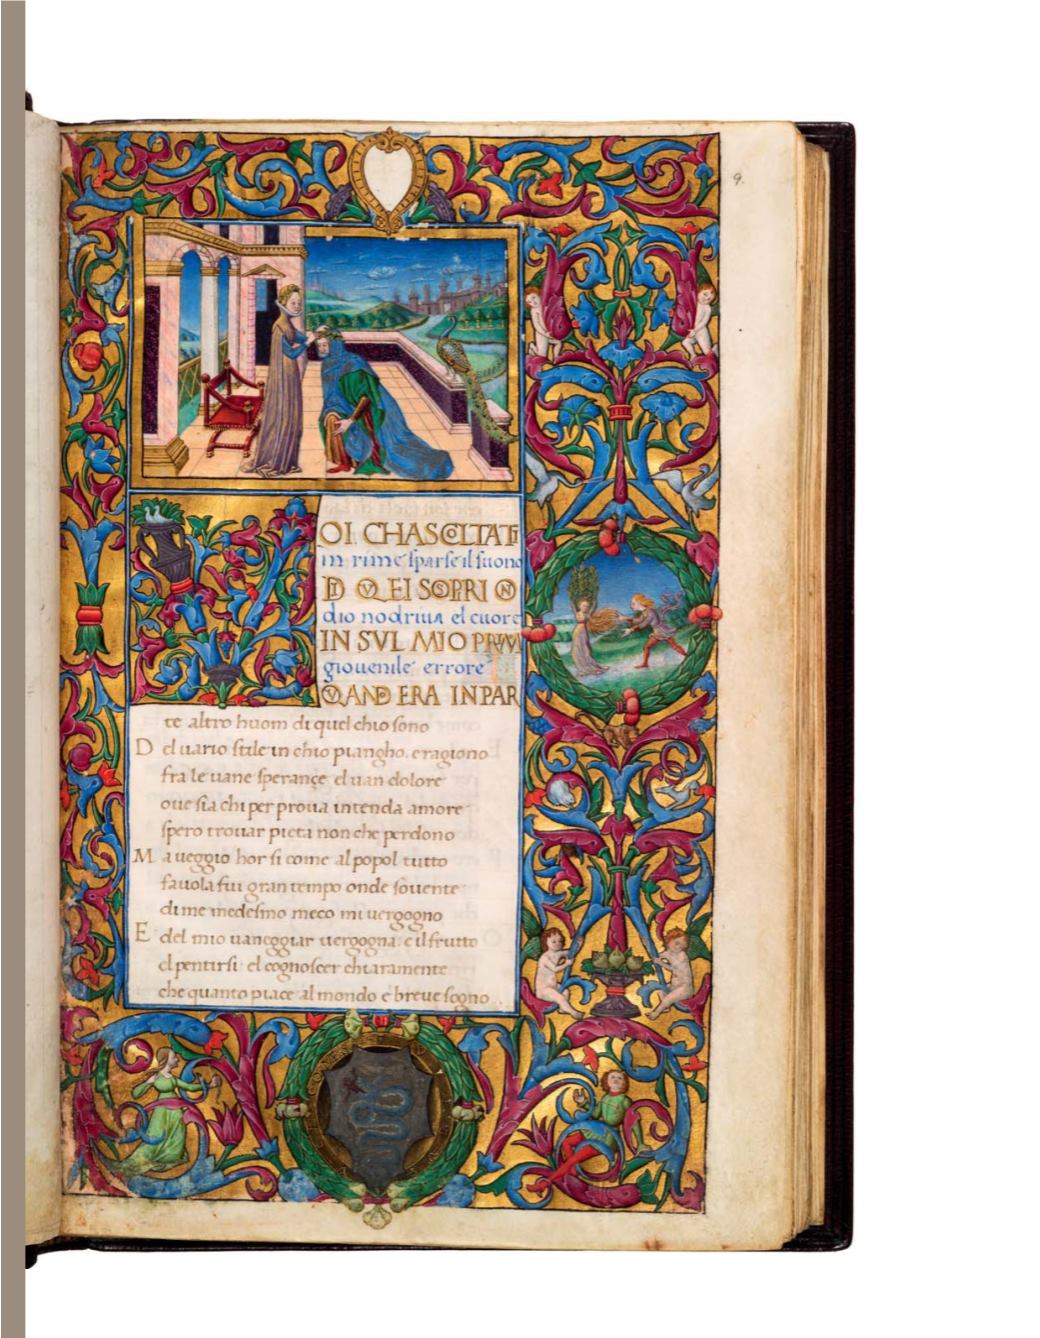 9.
OI CHASCOLTATI
in rime sparse il suono
DI QVEI SOSPIRI ON
dio nodriua el cuore
IN SVL MIO PRIM
giouenile errore
QVANDO ERA IN PAR
te altro huom di quel chio sono
D el uario stile in chio piangho. e ragiono
fra le uane sperançe el uan dolore
oue sia chi per proua intenda amore
spero trouar pieta non che perdono
M a ueggio hor si come al popol tutto
fauola fui gran tempo onde souente
di me medesmo meco mi uergogno
E del mio uaneggiar uergogna e il frutto
el pentirsi el cognoscer chiaramente
che quanto piace al mondo e breue sogno